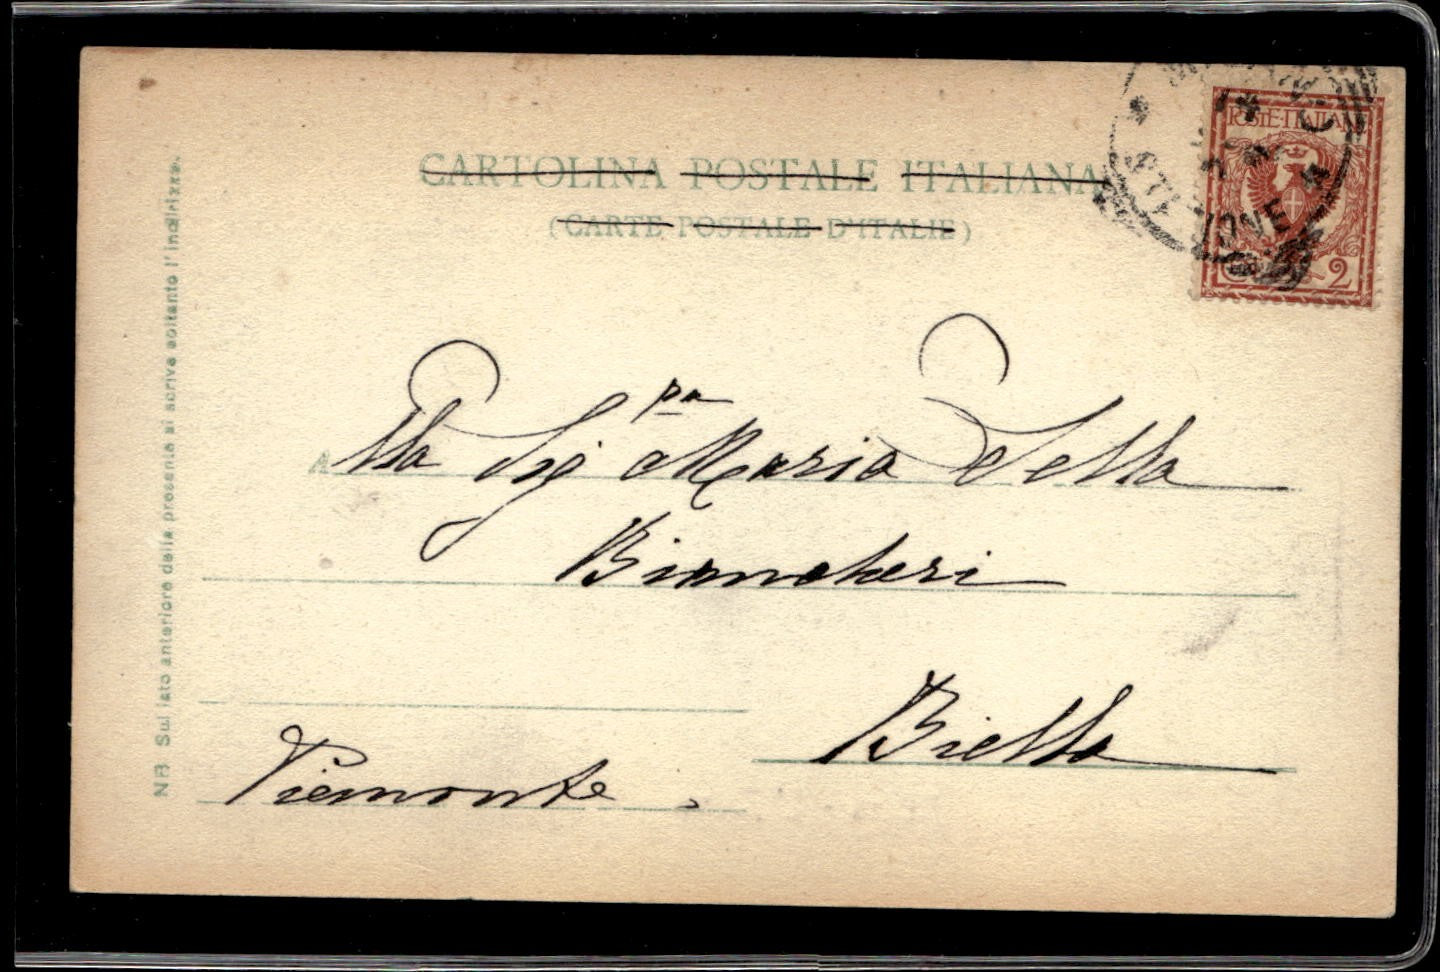 CARTOLINA POSTALE ITALIANA
(CARTE POSTALE D'ITALIE)
POSTE ITALIANE
2
NB. Sul lato anteriore della presente si scriva soltanto l'indirizzo.
Alla Sig.ra Maria Sella
Biancheri
Biella
Piemonte.